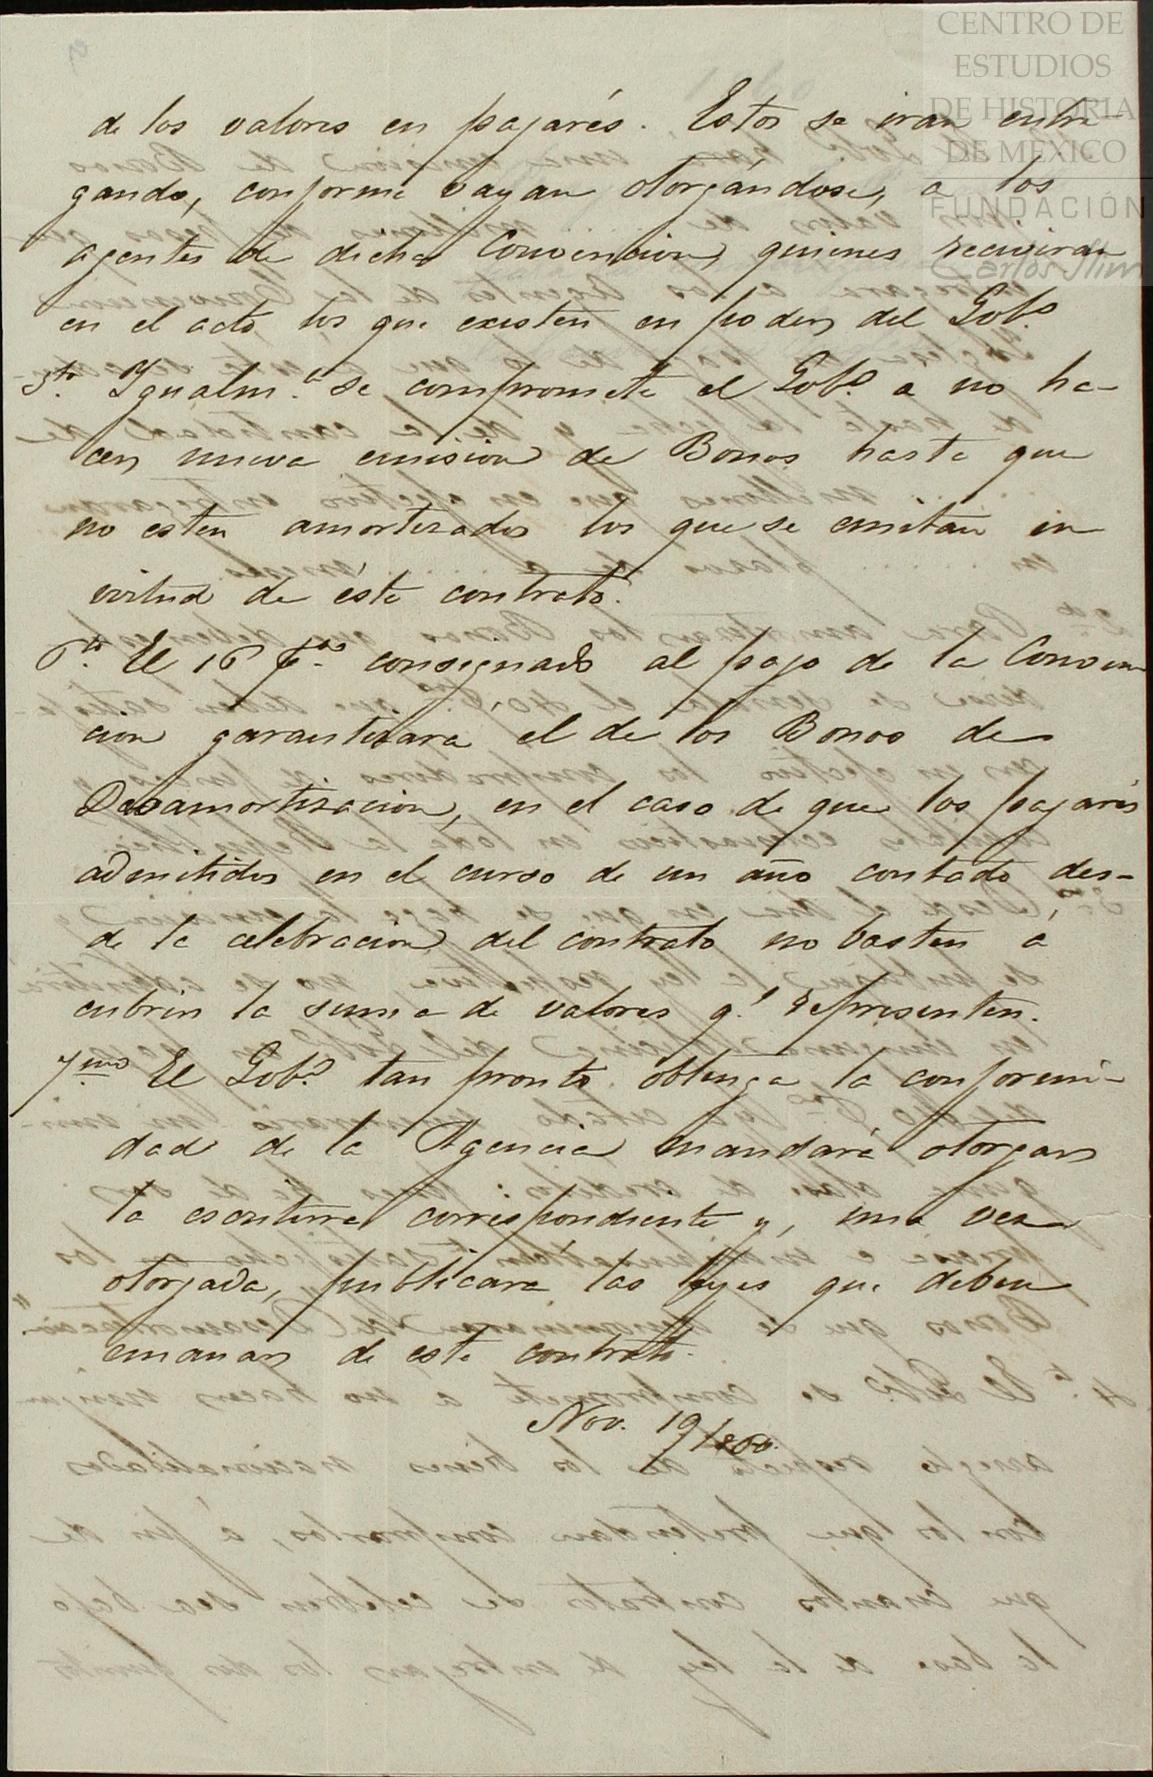 CENTRO DE
ESTUDIOS
DE HISTORIA
DE MÉXICO
FUNDACIÓN
Carlos Slim
de los valores en pagarés. Estos se iran entre-
gando, conforme vayan otorgándose, a los
agentes de dicha Convencion, quienes recivirán
en el acto, los que existen en poder del Gobo.
5ta. Igualm.e se compromete el Gobo. a no ha-
cer nueva emision de Bonos hasta que
no esten amortizados los que se emitan en
virtud de éste contrato.
6a. El 16 p.o consignado al pago de la Conven
cion garantizara el de los Bonos de
Desamortizacion, en el caso de que los pagarés
admitidos en el curso de un año contado des-
de la celebracion del contrato no basten á
cubrir la suma de valores q.e representen.
7ma. El Gobo. tan pronto obtenga la conformi-
dad de la Agencia mandará otorgar
la escritura correspondiente y, una vez
otorgada, publicara las leyes que deben
emanar de este contrato.
Nov. 19/860.